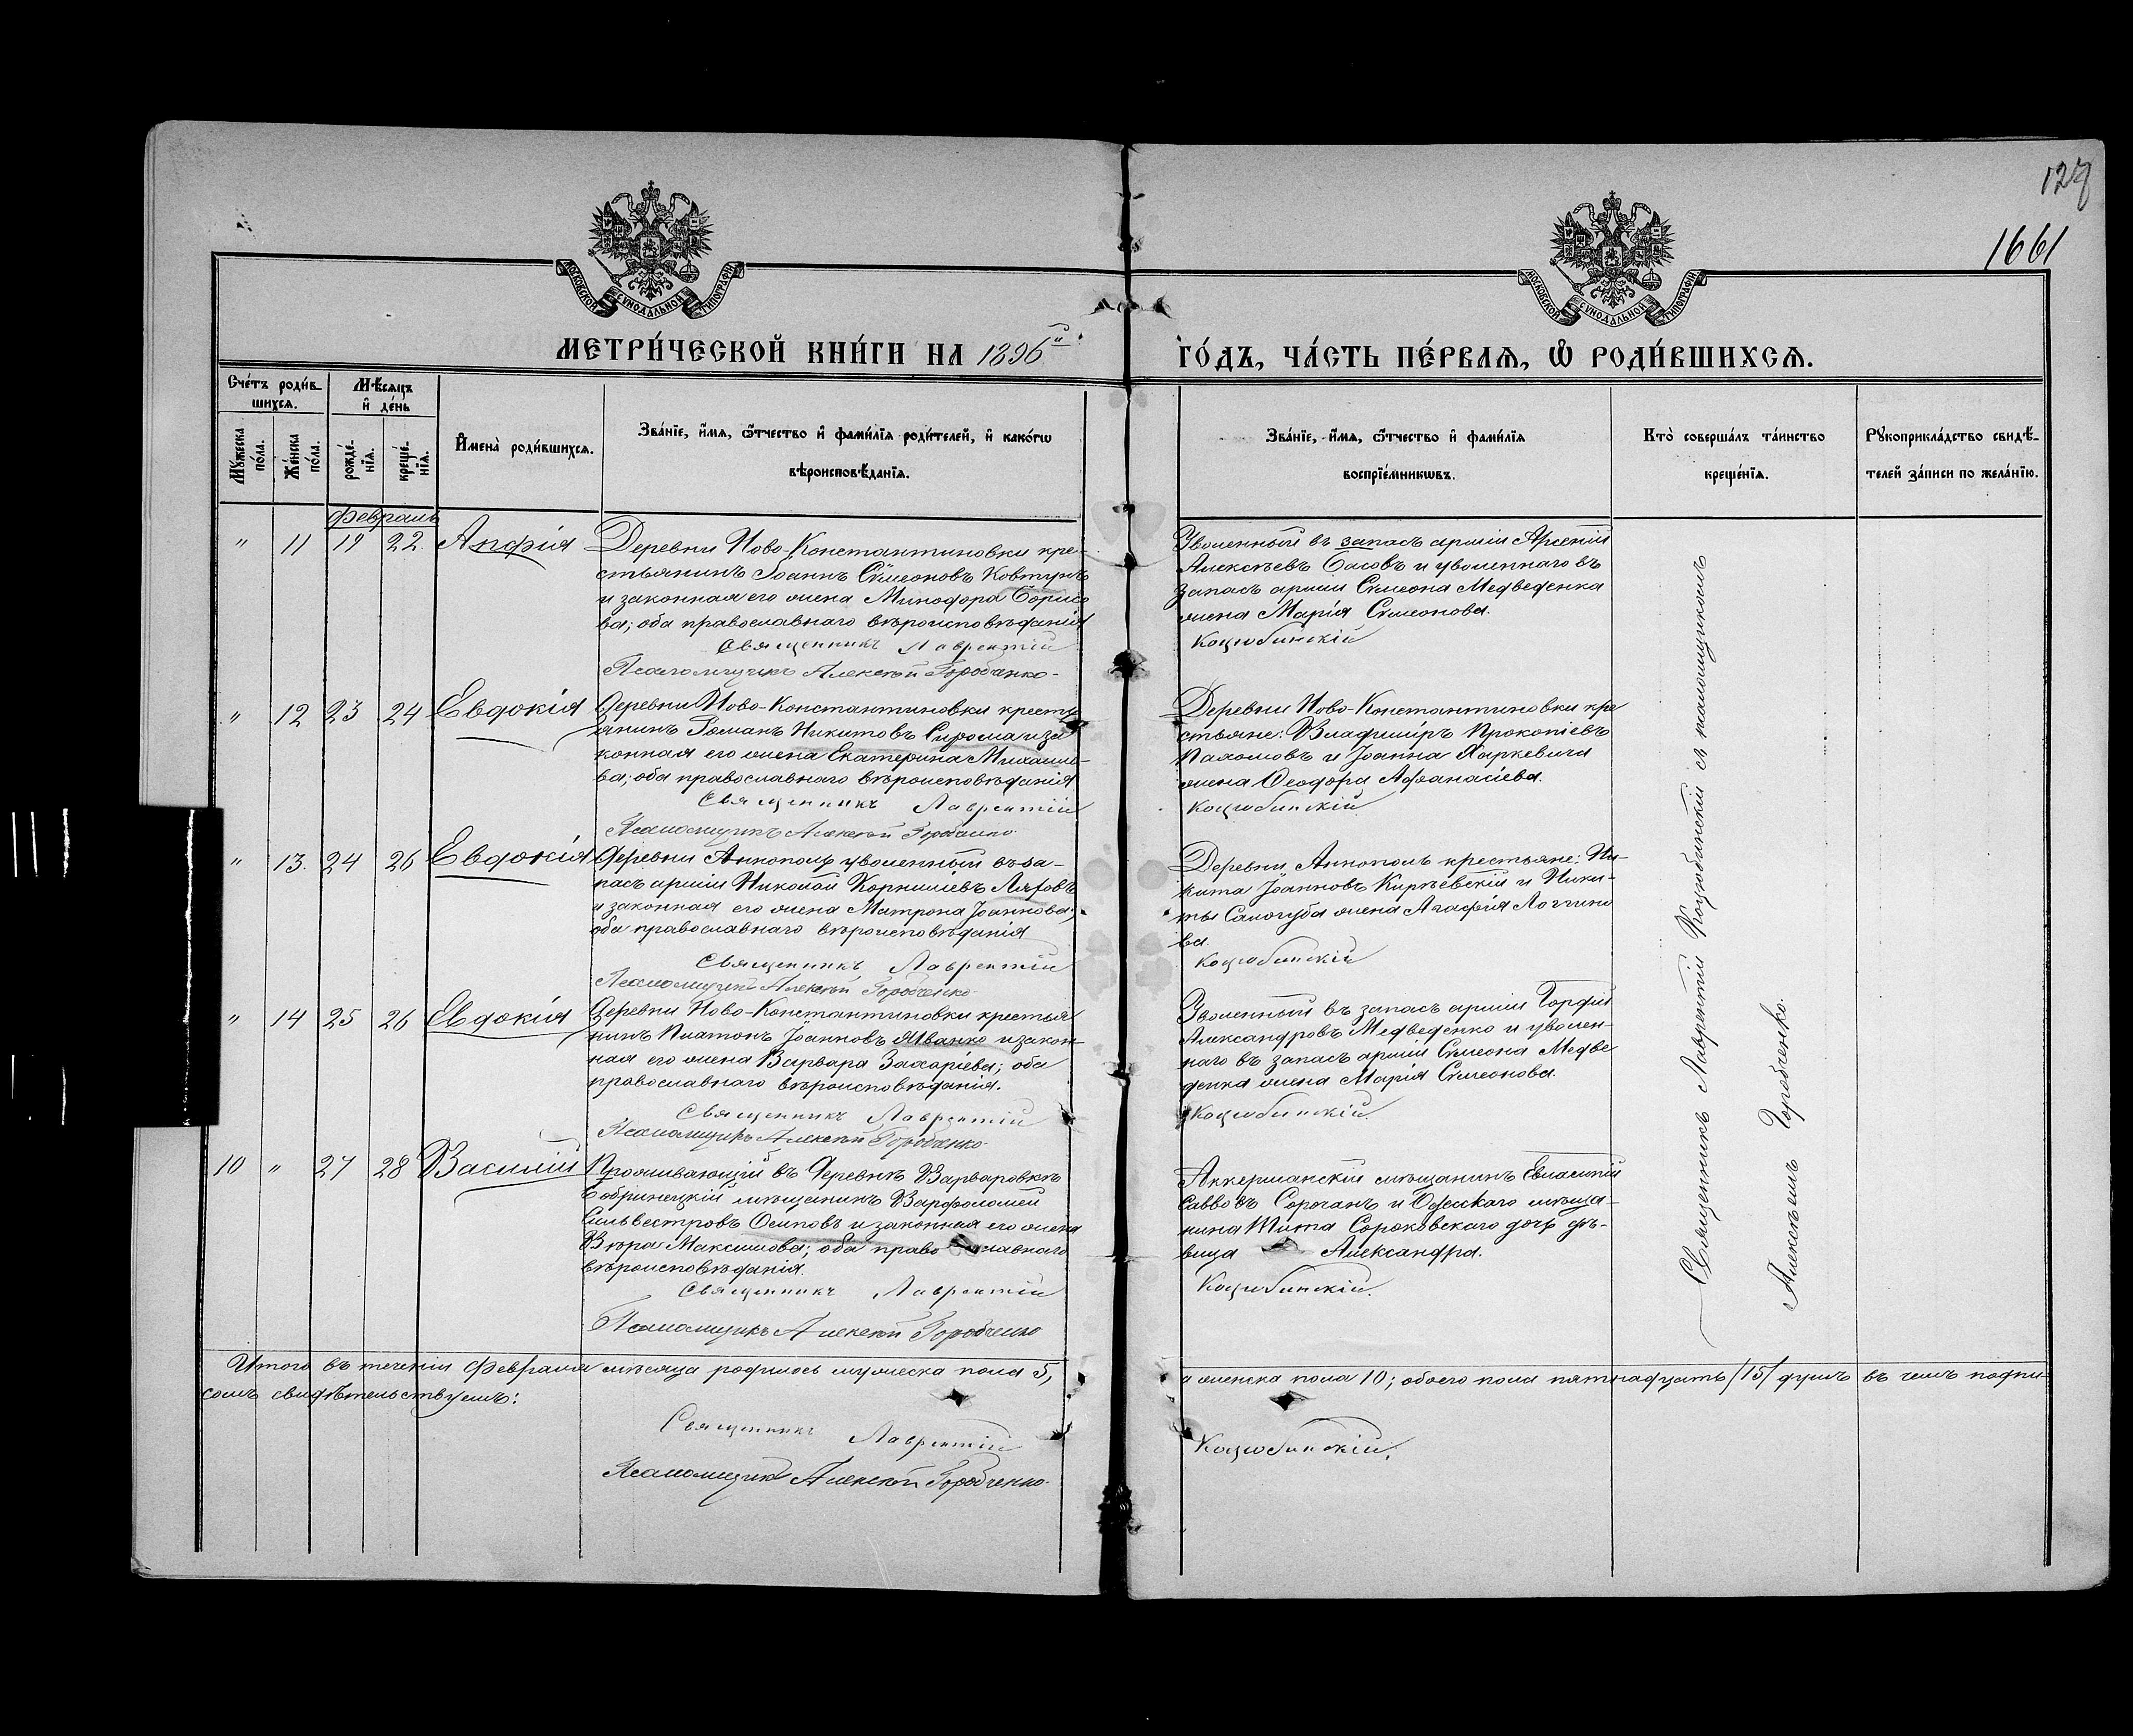 127
1661
МОСКОВСКОЙ СѴНОДАЛЬНОЙ ТИПОГРАФІИ
МОСКОВСКОЙ СѴНОДАЛЬНОЙ ТИПОГРАФІИ
МЕТРИ́ЧЕСКОЙ КНИ́ГИ НА 1896й
ГО́ДЪ, ЧА́СТЬ ПЕ́РВАѦ, Ѡ҆ РОДИ́ВШИХСѦ.
Сче́тъ роди́в-
шихсѧ.
Мѣ́сѧцъ
и҆ де́нь
Мꙋ́жеска по́ла.
Же́нска по́ла.
рожде́-
нїѧ.
креще́-
нїѧ.
И҆мена̀ роди́вшихсѧ.
Зва́нїе, и҆́мѧ, ѻ҆́тчество и҆ фами́лїѧ роди́телей, и҆ како́гѡ
вѣроисповѣ́данїѧ.
Зва́нїе, и҆́мѧ, ѻ҆́тчество и҆ фами́лїѧ
воспрїе́мникѡвъ.
Кто̀ соверша́лъ та́инство
креще́нїѧ.
Рꙋкоприкла́дство свидѣ́-
телей за́писи по жела́нїю.
Февраль
" 11 19 22. Апфія
Деревни Ново-Константиновки кре-
стьянинъ Іоаннъ Сѵмеоновъ Ковтунъ
и законная его жена Минодора Борисо
ва; оба православнаго вѣроисповѣданія
Священникъ Лаврентій
Псаломщикъ Алексѣй Горобченко
Уволенный въ запасъ арміи Арсеній
Алексѣевъ Басовъ и уволеннаго въ
запасъ арміи Сѵмеона Медведенка
жена Марія Сѵмеонова.
Коцюбинскій
" 12 23 24 Евдокія
Деревни Ново-Константиновки кресть
янинъ Романъ Никитовъ Сирома и за
конная его жена Екатерина Михаило-
ва; оба православнаго вѣроисповѣданія
Священникъ Лаврентій
Псаломщикъ Алексѣй Горобченко
Деревни Ново-Константиновки кре
стьяне: Владиміръ Прокопіевъ
Пахомовъ и Іоанна Харкевича
жена Ѳеодора Аѳанасіева.
Коцюбинскій
" 13. 24 26 Евдокія
Деревни Аннополь уволенный въ за-
пасъ арміи Николай Корниліевъ Ляховъ
и законная его жена Матрона Іоаннова;
оба православнаго вѣроисповѣданія
Священникъ Лаврентій
Псаломщикъ Алексѣй Горобченко
Деревни Аннополь крестьяне: Ни-
кита Іоанновъ Кирѣевскій и Ники-
ты Самогуба жена Агафія Логгино
ва.
Коцюбинскій
" 14 25 26 Евдокія
Деревни Ново-Константиновки крестья
нинъ Платонъ Іоанновъ Иванко и закон-
ная его жена Варвара Захаріева; оба
православнаго вѣроисповѣданія.
Священникъ Лаврентій
Псаломщикъ Алексѣй Горобченко
Уволенный въ запасъ арміи Гордій
Александровъ Медведенко и уволен-
наго въ запасъ арміи Сѵмеона Медве
денка жена Марія Сѵмеонова.
Коцюбинскій
10 " 27 28 Василій
Проживающій въ Деревнѣ Варваровкѣ
Бобринецкій мѣщанинъ Варфоломей
Сильвестровъ Осиповъ и законная его жена
Вѣра Максимова; оба православнаго
вѣроисповѣданія.
Священникъ Лаврентій
Псаломщикъ Алексѣй Горобченко
Аккерманскій мѣщанинъ Евлампій
Саввовъ Сорочанъ и Одесскаго мѣща-
нина Тита Сороковскаго дочь дѣ-
вица Александра.
Коцюбинскій.
Священникъ Лаврентій Коцюбинскій съ псаломщикомъ
Алексѣемъ Горобченко.
Итого въ теченіи Февраля мѣсяца родилось мужеска пола 5,
и женска пола 10; обоего пола пятнадцать /15/ душъ въ чемъ подпи-
сомъ свидѣтельствуемъ:
Священникъ Лаврентій
Коцюбинскій.
Псаломщикъ Алексѣй Горобченко